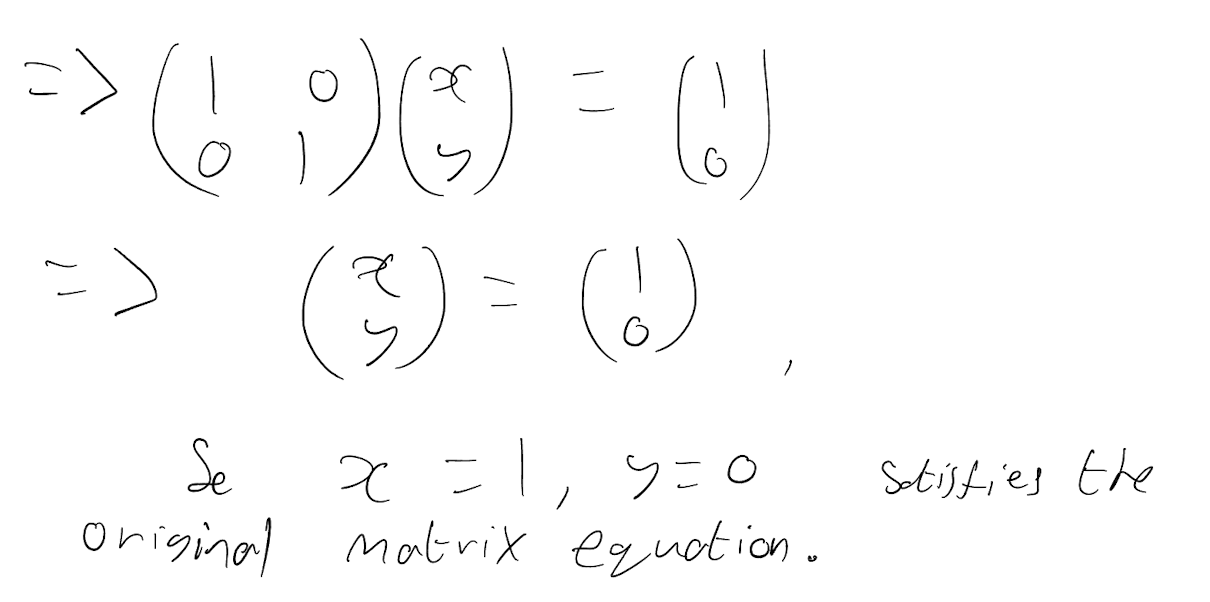 => (1 0
0 1)(x
y) = (1
0)
=> (x
y) = (1
0),
So x = 1, y = 0 satisfies the
original matrix equation.